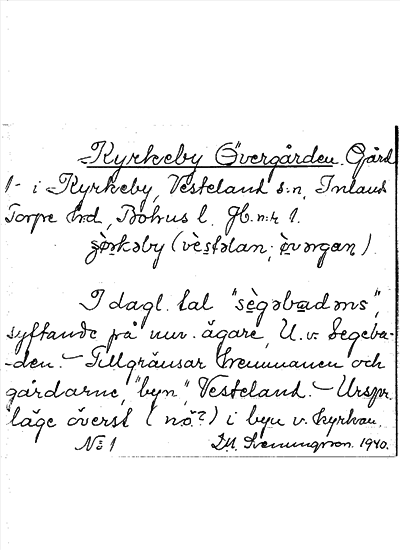 Kyrkeby Övergården. Gård
1- i Kyrkeby, Vesteland s:n, Inland
Torpe hrd, Bohus l. Jb.n:r 1.
(vèstəlan; )
I dagl. tal "sègəbadəns",
syftande på nuv. ägare, U. v. Segeba-
-den. - Tillgränsar Svenmanen och
gårdarne, "byn", Vesteland. - Urspr.
läge överst (nö?) i byn v. kyrkan.
No 1 D.H. Svenningsson. 1940.